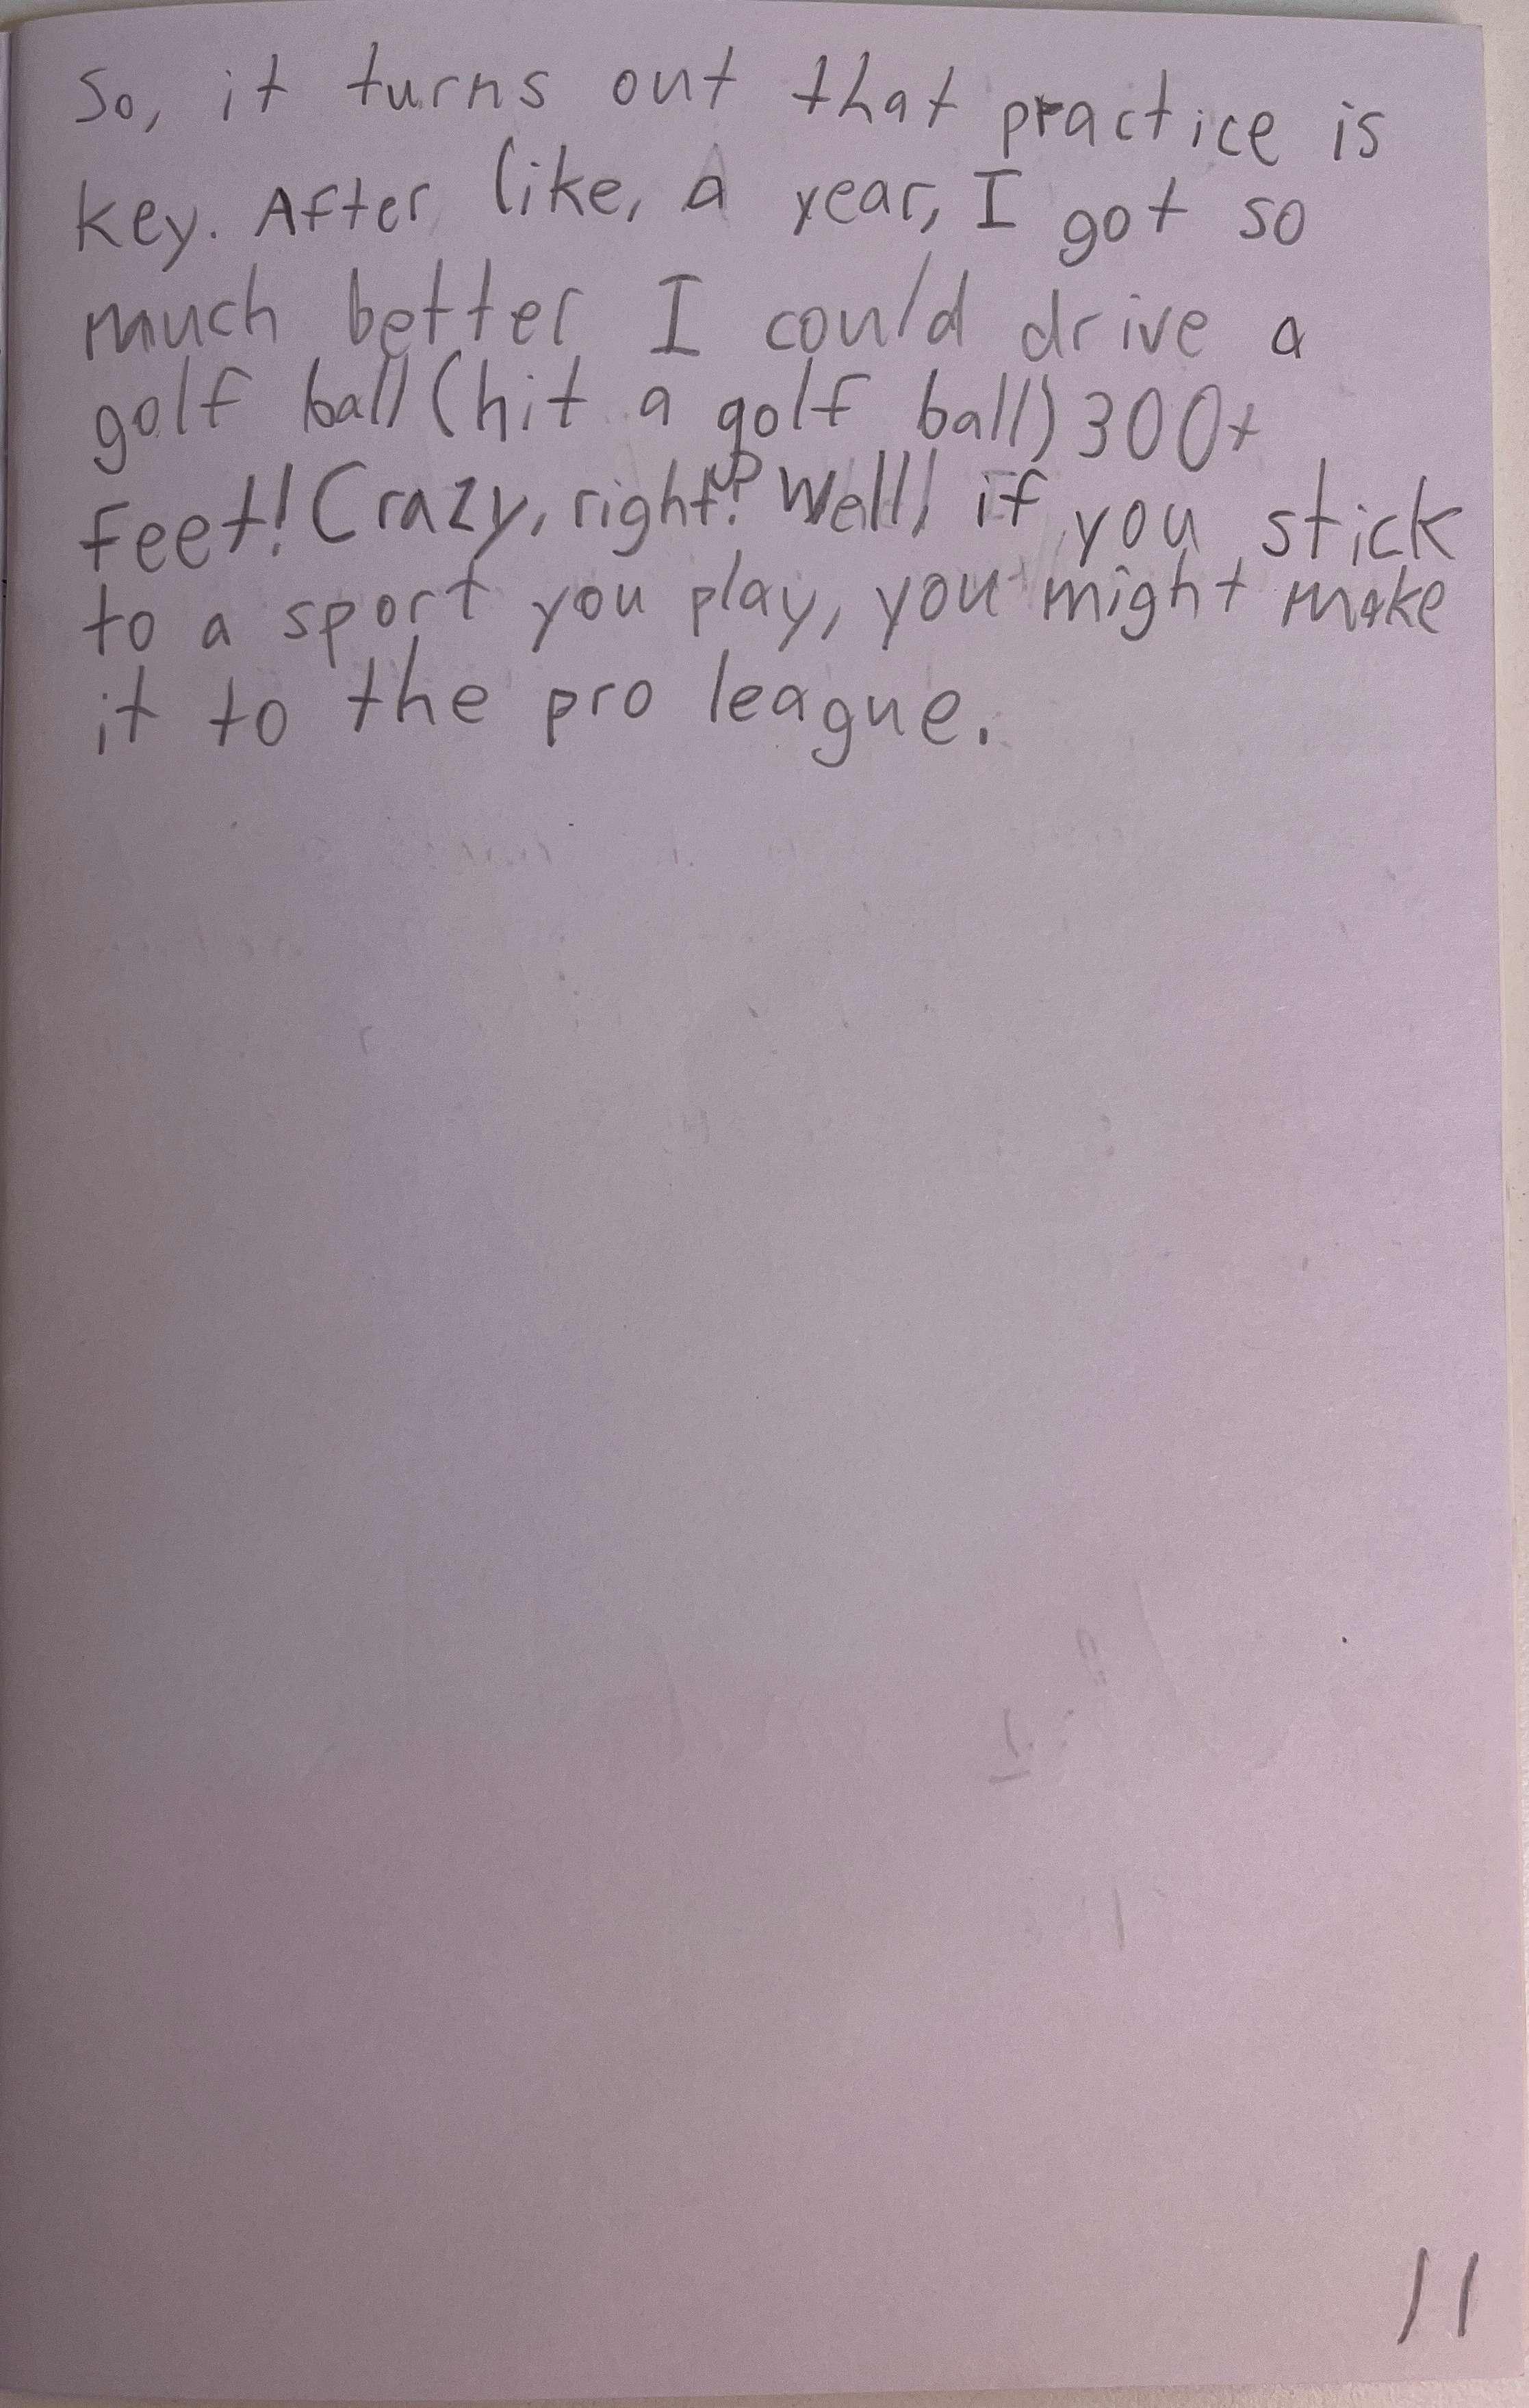 So, it turns out that practice is
key. After, like, a year, I got so
much better I could drive a
golf ball (hit a golf ball) 300+
feet! Crazy, right? Well, if you stick
to a sport you play, you might make
it to the pro league.
11